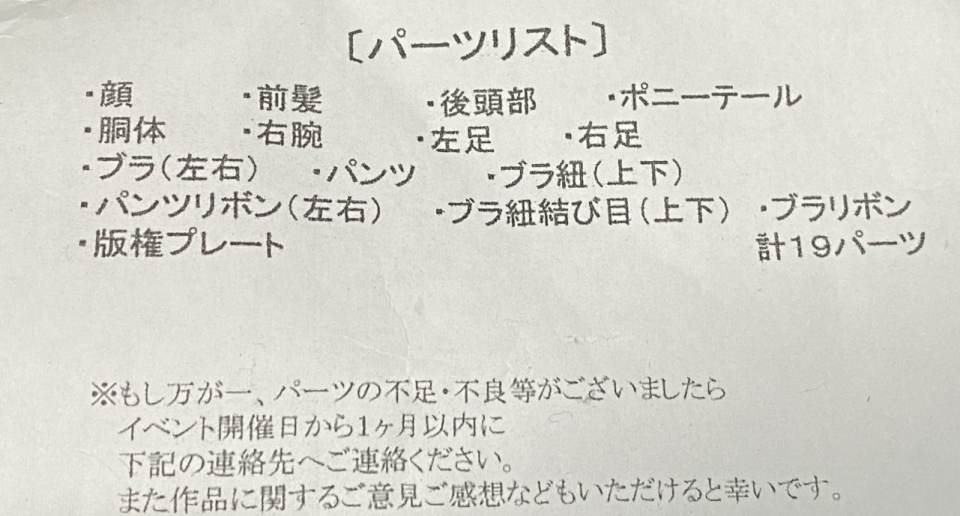 〔パーツリスト〕
・顔 ・前髪 ・後頭部 ・ポニーテール
・胴体 ・右腕 ・左足 ・右足
・ブラ(左右) ・パンツ ・ブラ紐(上下)
・パンツリボン(左右) ・ブラ紐結び目(上下) ・ブラリボン
・版権プレート 計19パーツ
※もし万が一、パーツの不足・不良等がございましたら
イベント開催日から1ヶ月以内に
下記の連絡先へご連絡ください。
また作品に関するご意見ご感想などもいただけると幸いです。